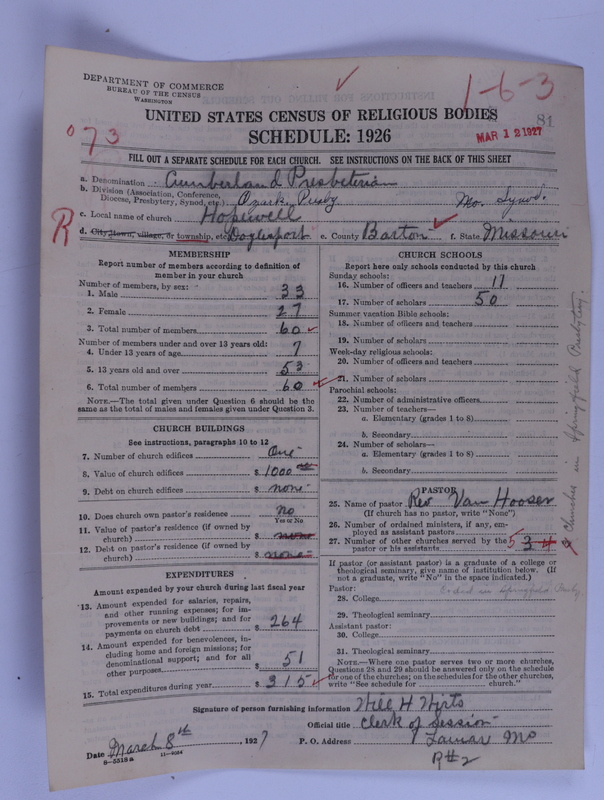 DEPARTMENT OF COMMERCE
BUREAU OF THE CENSUS
WASHINGTON
1-6-3
81
UNITED STATES CENSUS OF RELIGIOUS BODIES
SCHEDULE: 1926
MAR 12 1927
073
FILL OUT A SEPARATE SCHEDULE FOR EACH CHURCH. SEE INSTRUCTIONS ON THE BACK OF THIS SHEET
a. Denomination Cumberland Presbeterian
b. Division (Association, Conference, Diocese, Presbytery, Synod, etc.) Ozark Presby Mo. Synod.
R
c. Local name of church Hopewell
d. City, town, village, or township, etc. Doylesport e. County Barton f. State Missouri
MEMBERSHIP
Report number of members according to definition of member in your church
Number of members, by sex:
1. Male 33
2. Female 27
3. Total number of members 60
Number of members under and over 13 years old:
4. Under 13 years of age 7
5. 13 years old and over 53
6. Total number of members 60
NOTE.—The total given under Question 6 should be the same as the total of males and females given under Question 3.
CHURCH BUILDINGS
See instructions, paragraphs 10 to 12
7. Number of church edifices One
8. Value of church edifices $ 1000
9. Debt on church edifices $ none
10. Does church own pastor's residence? no
Yes or No
11. Value of pastor's residence (if owned by church) $ none
12. Debt on pastor's residence (if owned by church) $ none
EXPENDITURES
Amount expended by your church during last fiscal year
13. Amount expended for salaries, repairs, and other running expenses; for improvements or new buildings; and for payments on church debt $ 264
14. Amount expended for benevolences, including home and foreign missions; for denominational support; and for all other purposes $ 51
15. Total expenditures during year $ 315
CHURCH SCHOOLS
Report here only schools conducted by this church
Sunday schools:
16. Number of officers and teachers 11
17. Number of scholars 50
Summer vacation Bible schools:
18. Number of officers and teachers
19. Number of scholars
Week-day religious schools:
20. Number of officers and teachers
21. Number of scholars
Parochial schools:
22. Number of administrative officers
23. Number of teachers—
a. Elementary (grades 1 to 8)
b. Secondary
24. Number of scholars—
a. Elementary (grades 1 to 8)
b. Secondary
PASTOR
25. Name of pastor Rev Van Hooser
(If church has no pastor, write "None")
26. Number of ordained ministers, if any, employed as assistant pastors
27. Number of other churches served by the pastor or his assistants 5 3 4
churches in Springfield Presbytery.
If pastor (or assistant pastor) is a graduate of a college or theological seminary, give name of institution below. (If not a graduate, write "No" in the space indicated.)
Pastor:
28. College
29. Theological seminary
Assistant pastor:
30. College
31. Theological seminary
NOTE.—Where one pastor serves two or more churches, Questions 28 and 29 should be answered only on the schedule for one of the churches; on the schedules for the other churches, write "See schedule for church."
Signature of person furnishing information Will H Wirts
Official title Clerk of Session
Date March 8th, 1927 P. O. Address Lamar Mo
R#2
8-5318a
11-9594